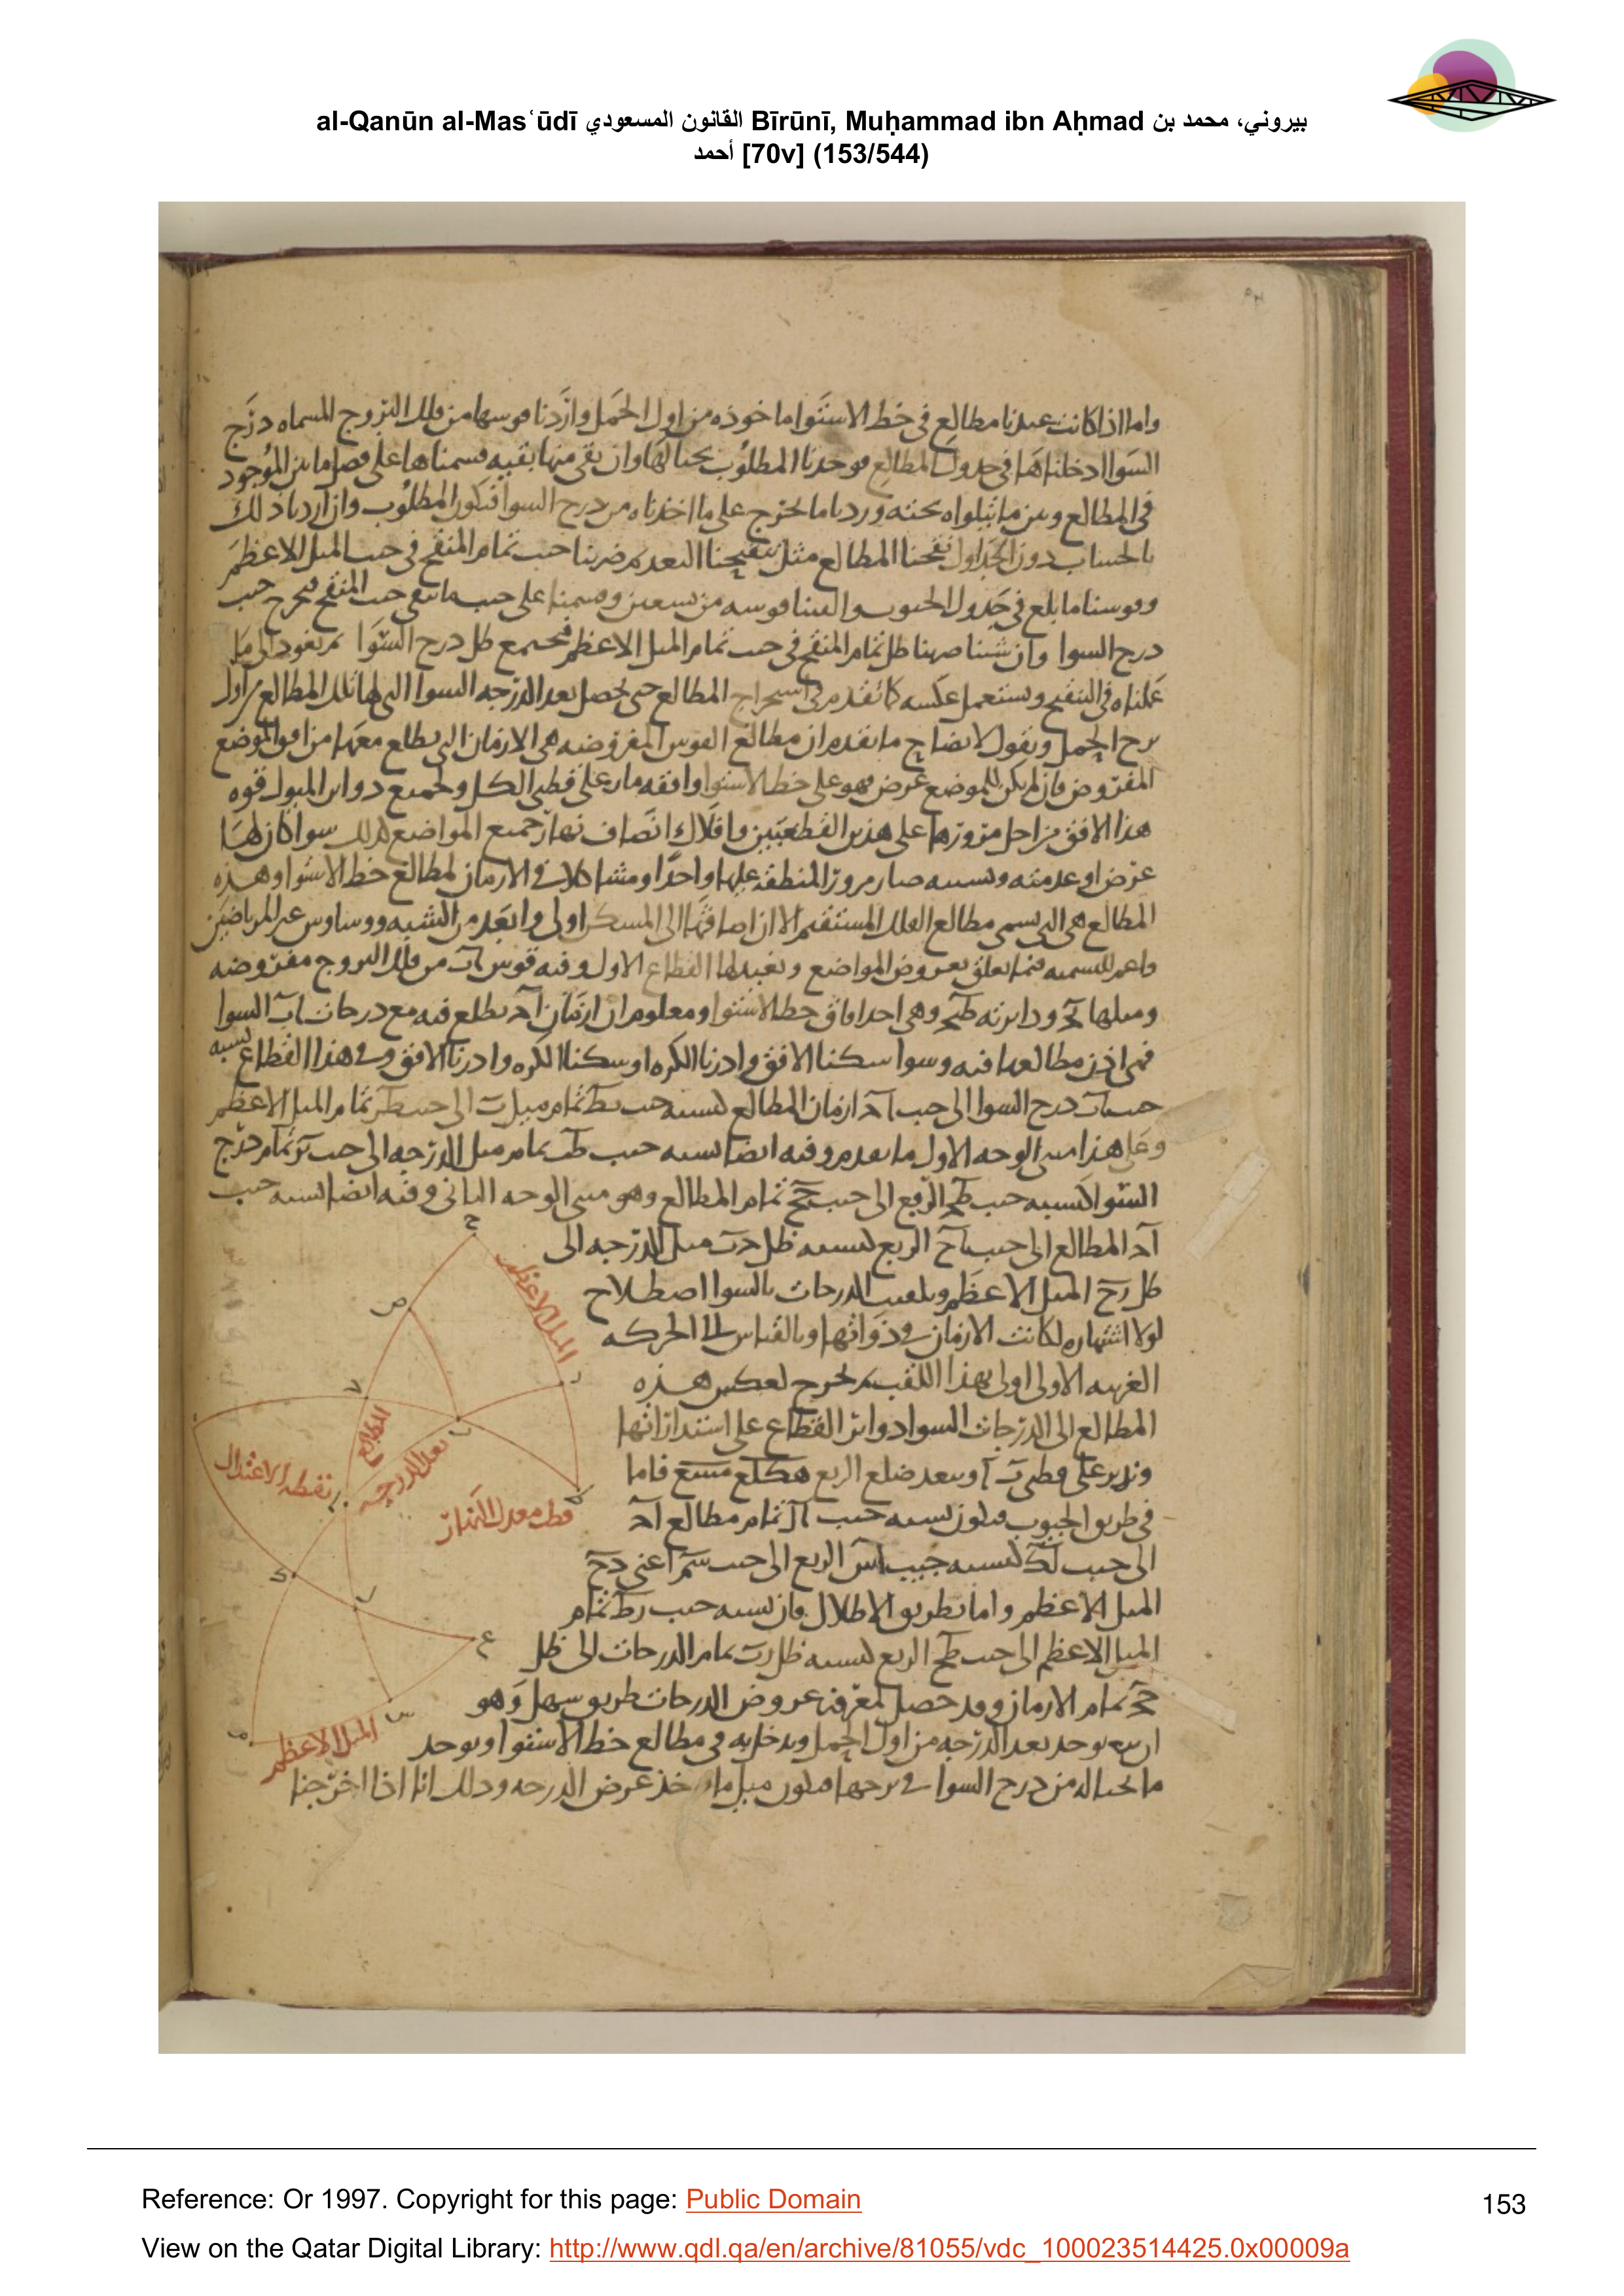 al-Qanūn al-Masʿūdī القانون المسعودي Bīrūnī, Muḥammad ibn Aḥmad بيروني، محمد بن
أحمد [70v] (153/544)
واما اذا كانت عندنا مطالع فى خط الاستوا ماخوذه من اول الحمل واردنا قوسها من فلك البروج المسماه درج
السوا ادخلناها فى جدول المطالع فوجدنا المطلوب بحيالها وان بقى منها بقيه قسمناها على فصل ما بين الموجود
فى المطالع وبين ما يتلواه تحته وزدنا ما يخرج على ما اخذناه من درج السوا فيكون المطلوب وان اردنا ذلك
بالحساب دون الجداول نقحنا المطالع مثل تنقيحنا البعد ثم ضربنا جيب تمام المنقح فى جيب الميل الاعظم
وقوسنا ما بلغ فى جدول الجيوب والقينا قوسه من تسعين وقسمنا على جيب ما بقى جيب المنقح فيخرج جيب
درج السوا وان شئنا ضربنا ظل تمام المنقح فى جيب تمام الميل الاعظم فيجتمع ظل درج السوا ثم نعود الى ما
عملناه فى التنقيح ونستعمل عكسه كما تقدم فى استخراج المطالع حتى يحصل بعد الدرجه السوا التى لها تلك المطالع من اول
برج الحمل ونقول لايضاح ما تقدم ان مطالع القوس المفروضه هى الازمان التى يطلع معها من افق الموضع
المفروض فان لم يكن للموضع عرض فهو على خط الاستوا وافقه مار على قطبى الكل ولجميع دواير الميول قوه
هذا الافق من اجل مرورها على هذين القطبين وافلاك انصاف نهار جميع المواضع كذلك سوا كان لها
عرض او عدمته وبسببه صار مرور المنطقه عليها واحدا ومشاكلا فى الازمان لمطالع خط الاستوا وهذه
المطالع هى التى تسمى مطالع الفلك المستقيم الا ان اضافتها الى المسكن اولى وابعد من الشبه ووساوس غير المرتاضين
واعم للتسميه فيما تعلق بعروض المواضع ونعيد لها القطاع الاول وفيه قوس اب من فلك البروج مفروضه
وميلها بح ودايرته طبح وهى احد افاق خط الاستوا ومعلوم ان ازمان اح تطلع فيه مع درجات اب السوا
فهى اذن مطالعها فيه وسوا سكنا الافق وادرنا الكره او سكنا الكره وادرنا الافق وفى هذا القطاع نسبه
جيب اب درج السوا الى جيب اح ازمان المطالع كنسبه جيب بط تمام ميل ب الى جيب طر تمام الميل الاعظم
وعلى هذا مبنى الوجه الاول ما تقدم وفيه ايضا نسبه جيب طب تمام ميل الدرجه الى جيب بر تمام درج
السوا كنسبه جيب طح الربع الى جيب حج تمام المطالع وهو مبنى الوجه الثانى وفيه ايضا نسبه جيب
اح المطالع الى جيب اج الربع كنسبه ظل حب ميل الدرجه الى
ظل رج الميل الاعظم وتلقيب الدرجات بالسوا اصطلاح
لولا اشتهاره لكانت الازمان فى ذواتها وبالقياس الى الحركه
الغربيه الاولى اولى بهذا اللقب ثم نخرج لعكس هذه
المطالع الى الدرجات السوا دواير القطاع على استداراتها
وندير على قطب ب وببعد ضلع المربع فاما
فى طريق الجيوب فيكون نسبه جيب ال تمام مطالع اح
الى جيب لك كنسبه جيب اس الربع الى جيب سم اعنى رج
الميل الاعظم واما بطريق الاظلال فان نسبه جيب رط تمام
الميل الاعظم الى جيب طج الربع كنسبه ظل رب تمام الدرجات الى ظل
حج تمام الازمان وقد حصل لمعرفه عروض الدرجات طريق سهل وهو
ان يوجد بعد الدرجه من اول الحمل ويدخل به فى مطالع خط الاستوا ويوجد
ما بحياله من درج السوا فى برجها فيكون ميل ما اخذ عرض الدرجه وذلك انا اذا اخرجنا
الميل الاعظم
المطالع
بعد الدرجه
نقطه الاعتدال
قطب معدل النهار
الميل الاعظم
Reference: Or 1997. Copyright for this page: Public Domain
153
View on the Qatar Digital Library: http://www.qdl.qa/en/archive/81055/vdc_100023514425.0x00009a